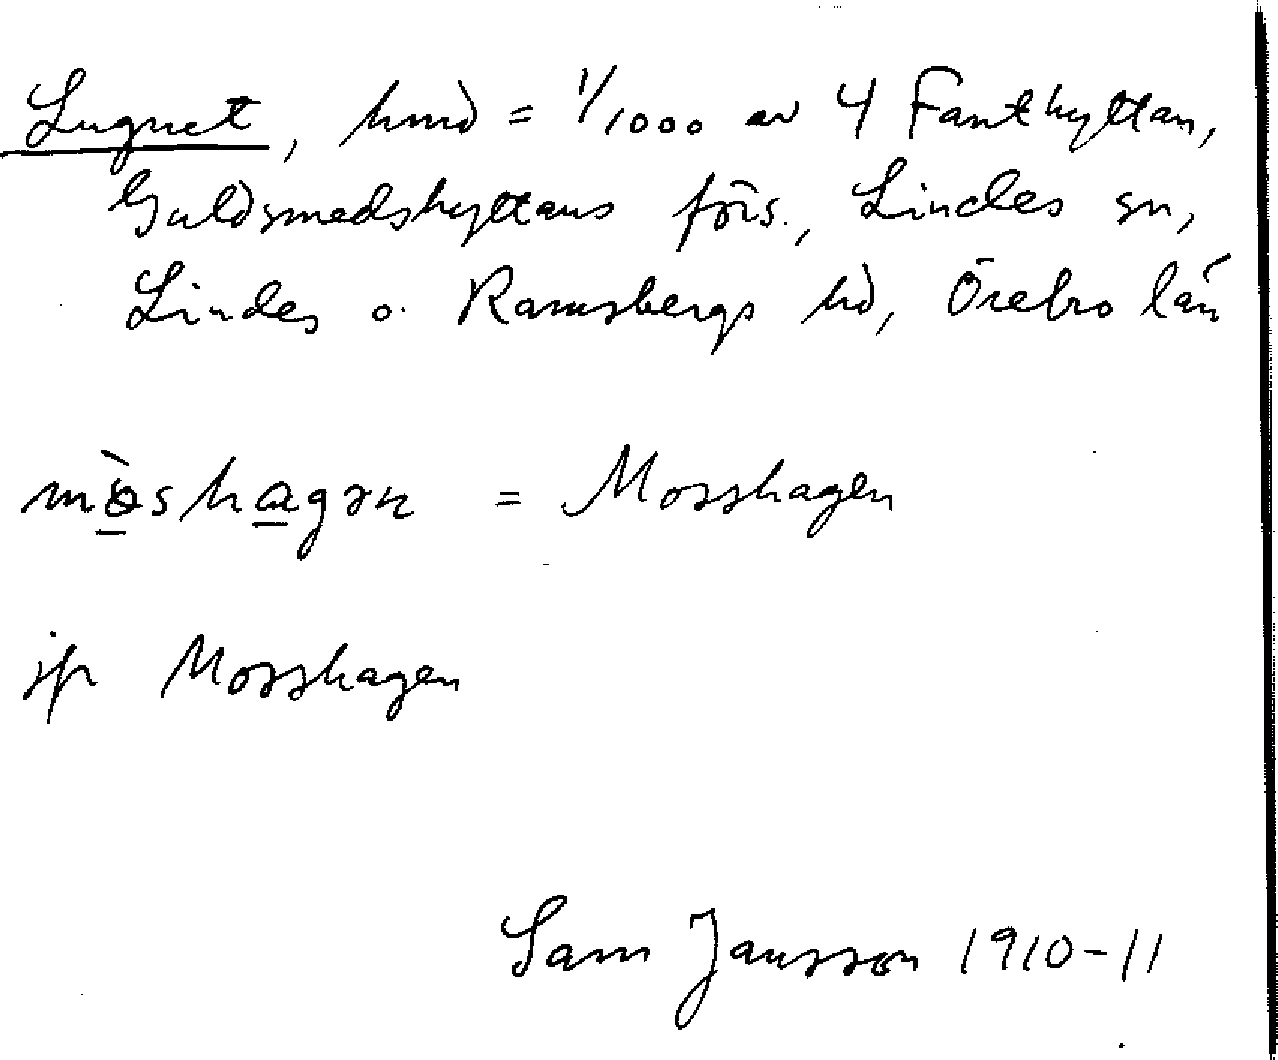 Lugnet, hmd = 1/1000 av 4 Fanthyttan,
Guldsmedshyttans förs., Lindes sn,
Lindes o. Ramsbergs hd, Örebro län
mòshagən = Mosshagen
jfr Mosshagen
Sam Jansson 1910-11